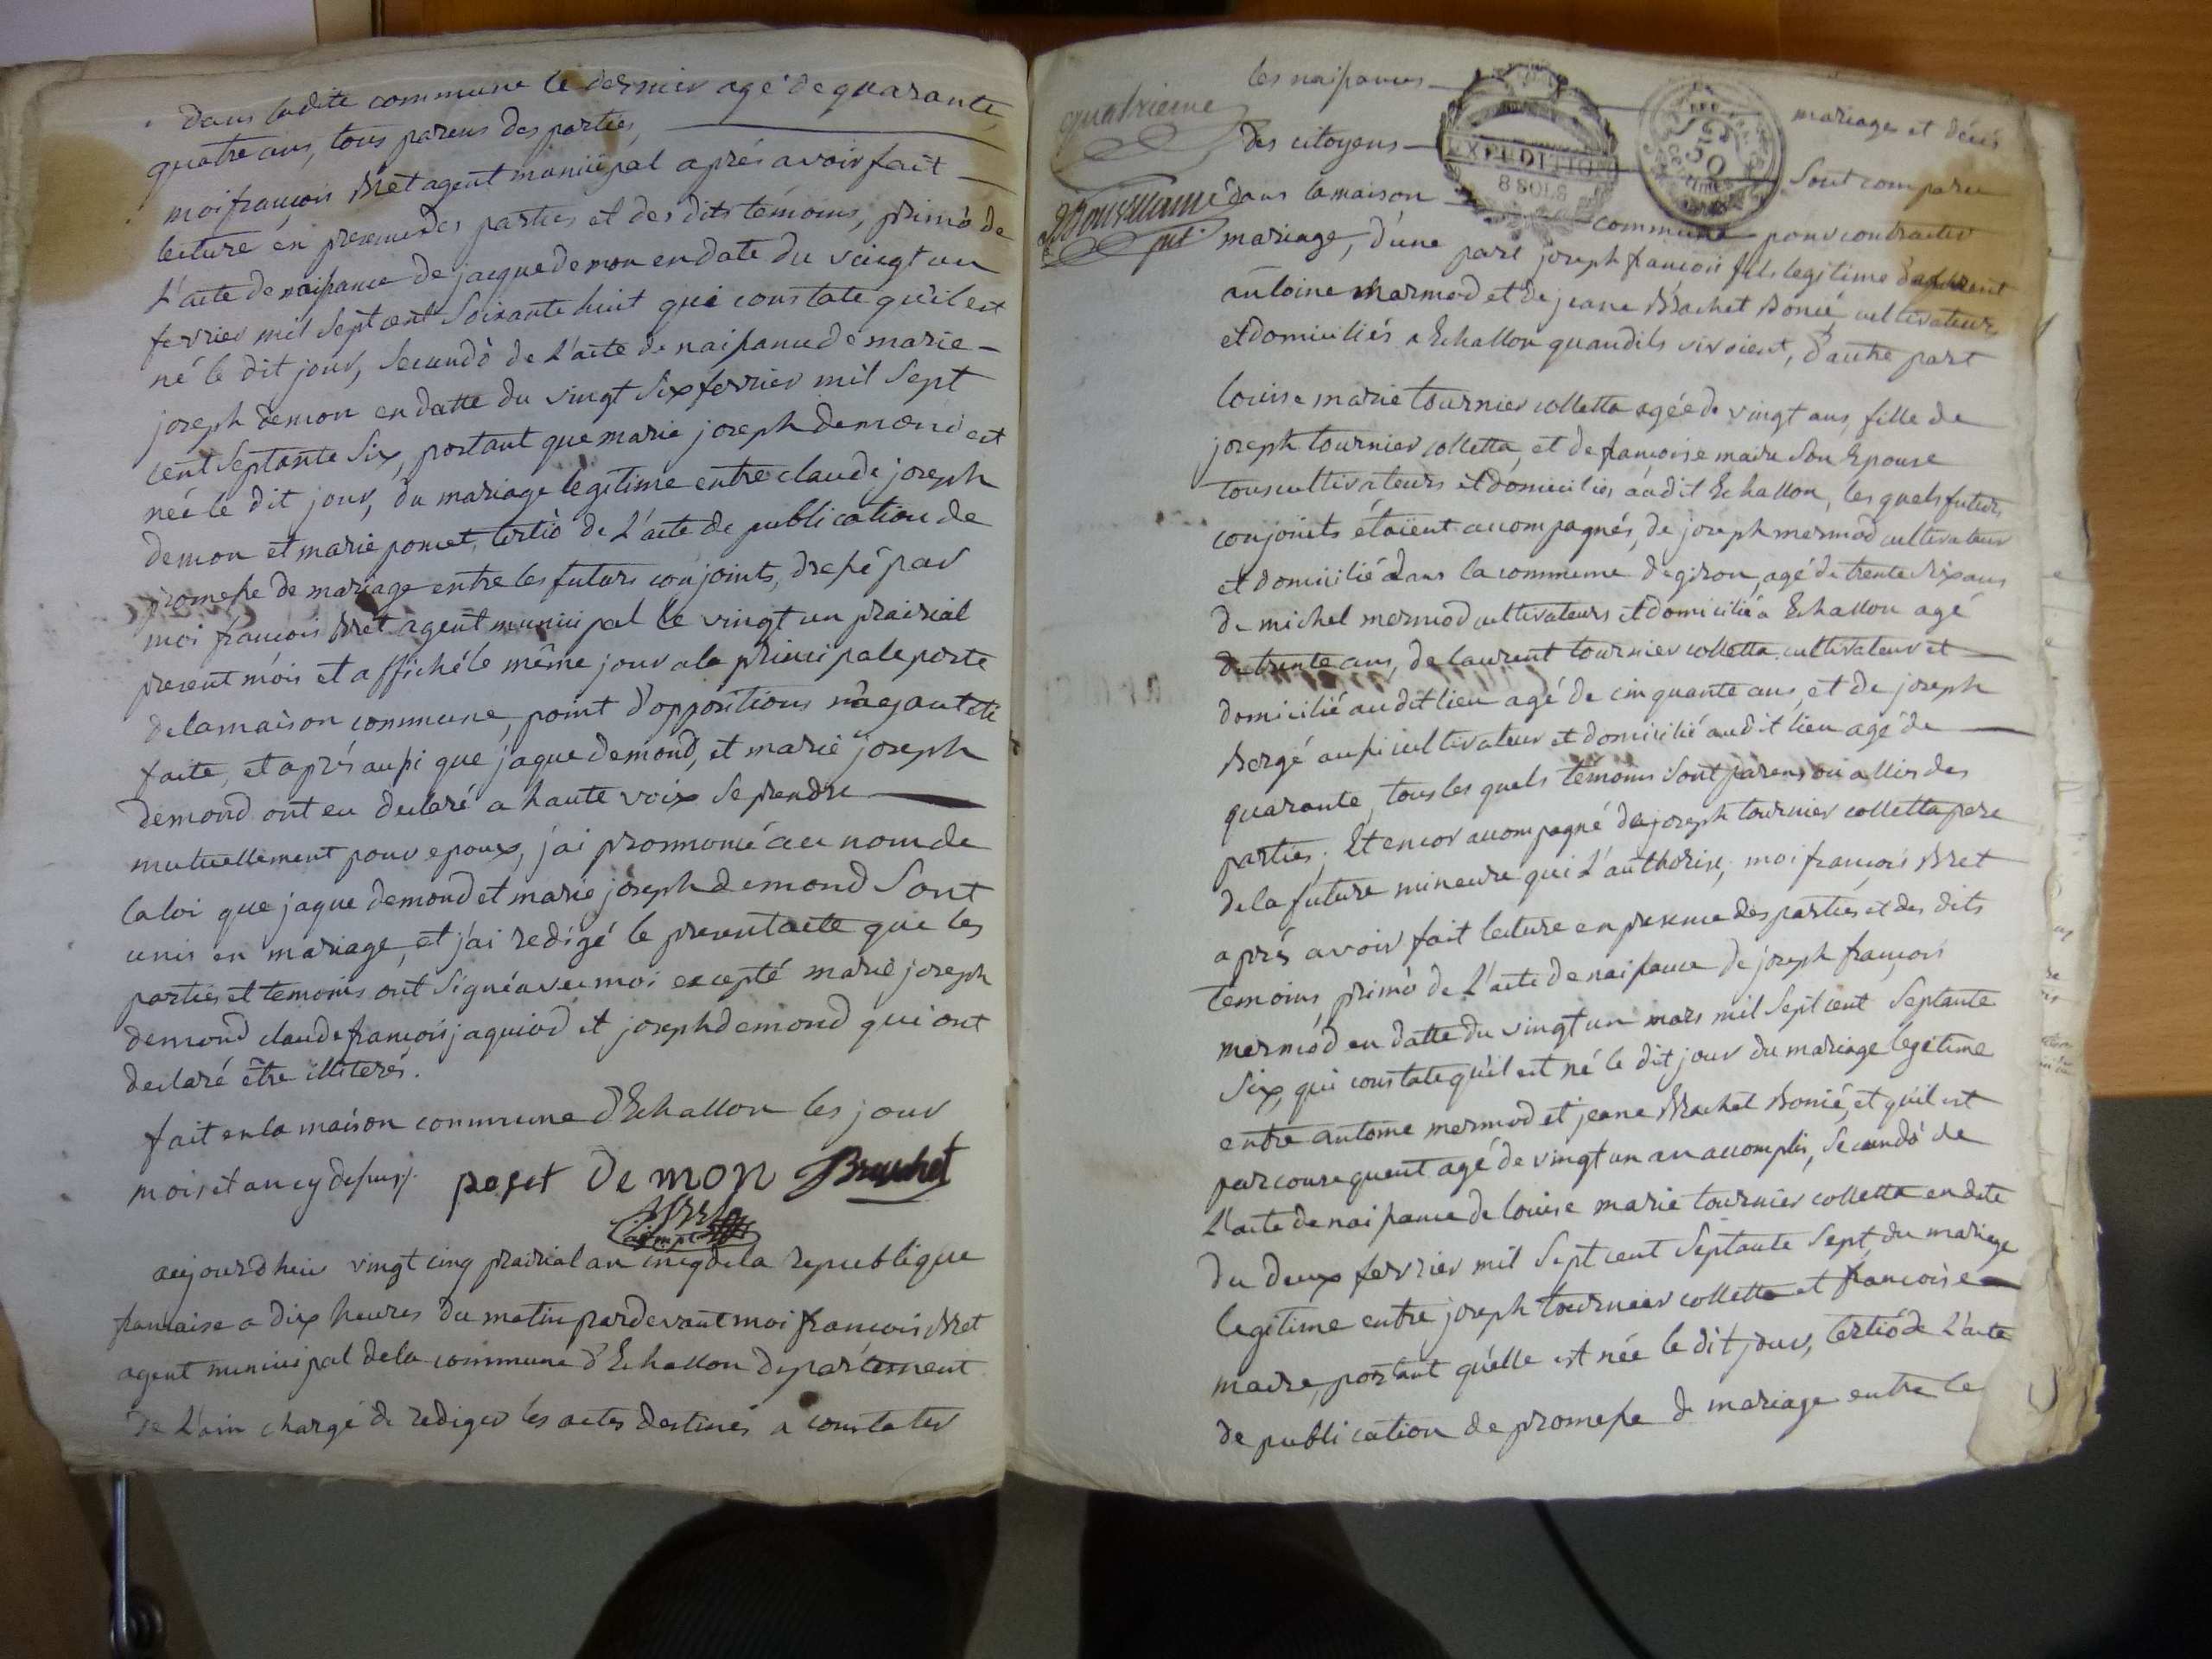 dans ladite commune le dernier agé de quarante
quatre ans, tous parens des parties
moi françois Bret agent municipal aprés avoir fait
lecture en presence des parties et des dits témoins, primò de
L'acte de naissance de jacque demon en date du vingt un
fevrier mil sept cent soixante huit qui constate qu'il est
né le dit jour, secundò de L'acte de naissance de marie
joseph demon en datte du vingt six fevrier mil sept
cent septante six, portant que marie joseph demon est
née le dit jour, du mariage legitime entre claude joseph
demon et marie poncet, tertiò de L'acte de publication de
promesse de mariage entre les futurs conjoints, dressé par
moi françois Bret agent municipal le vingt un prairial
present mois et affiché le même jour a la principale porte
de la maison commune, point d'oppositions n'ayant été
faite, et aprés aussi que jaque demond, et marie joseph
demond ont eu declaré a haute voix se prendre
mutuellement pour epoux, j'ai prononcé au nom de
la loi que jaque demond et marie joseph demond sont
unis en mariage, et j'ai redigé le present acte que les
parties et temoins ont signé avec moi excepté marie joseph
demond claude françois jaquiod et joseph demond qui ont
declaré être illiterés.
fait en la maison commune d'Echallon les jour
mois et an cy dessus. poset De mon Brachet
Bret
agent mpal
aujourd'huir vingt cinq prairial an cinq de la republique
francaise a dix heures du matin pardevant moi françois Bret
agent municipal de la commune d'Echallon departement
de L'ain chargé de rediger les actes destinés a constater
quatrieme
les naissances mariages et décés
des citoyens sont comparu
EXPEDITION
8 SOLS
50
dans la maison commune pour contracter
mariage, d'une part joseph françois fils legitime
antoine mermod et de jeane Brachet Bonié cultivateurs
et domiciliés a Echallon quand ils vivoient, d'autre part
louise marie tournier colletta agée de vingt ans, fille de
joseph tournier colletta, et de francoise maire son Epouse
tous cultivateurs et domiciliés audit Echallon, les quels futurs
conjoints étoient accompagnés, de joseph mermod cultivateur
et domicilié dans la commune de giron, agé de trente six ans
de michel mermod cultivateurs et domicilié a Echallon agé
de trente ans, de laurent tournier colletta cultivateur et
domicilié audit lieu agé de cinquante ans, et de joseph
Bergé aussi cultivateur et domicilié audit lieu agé de
quarante, tous les quels témoins sont parens ou alliés des
parties; Et encor accompagné de joseph tournier colletta pere
de la future mineure qui L'authorise, moi françois Bret
aprés avoir fait lecture en presence des parties et des dits
temoins, primò de L'acte de naissance de joseph françois
mermod en datte du vingt un mars mil sept cent septante
six, qui constate qu'il est né le dit jour du mariage legitime
entre antoine mermod et jeane Brachet Bonié, et qu'il est
par consequent agé de vingt un an accomplis, secundò de
L'acte de naissance de louise marie tournier colletta en date
du deux fevrier mil sept cent septante sept, du mariage
legitime entre joseph tournier colletta et françoise
maire, portant qu'elle est née le dit jour, tertiò de L'acte
de publication de promesse de mariage entre le